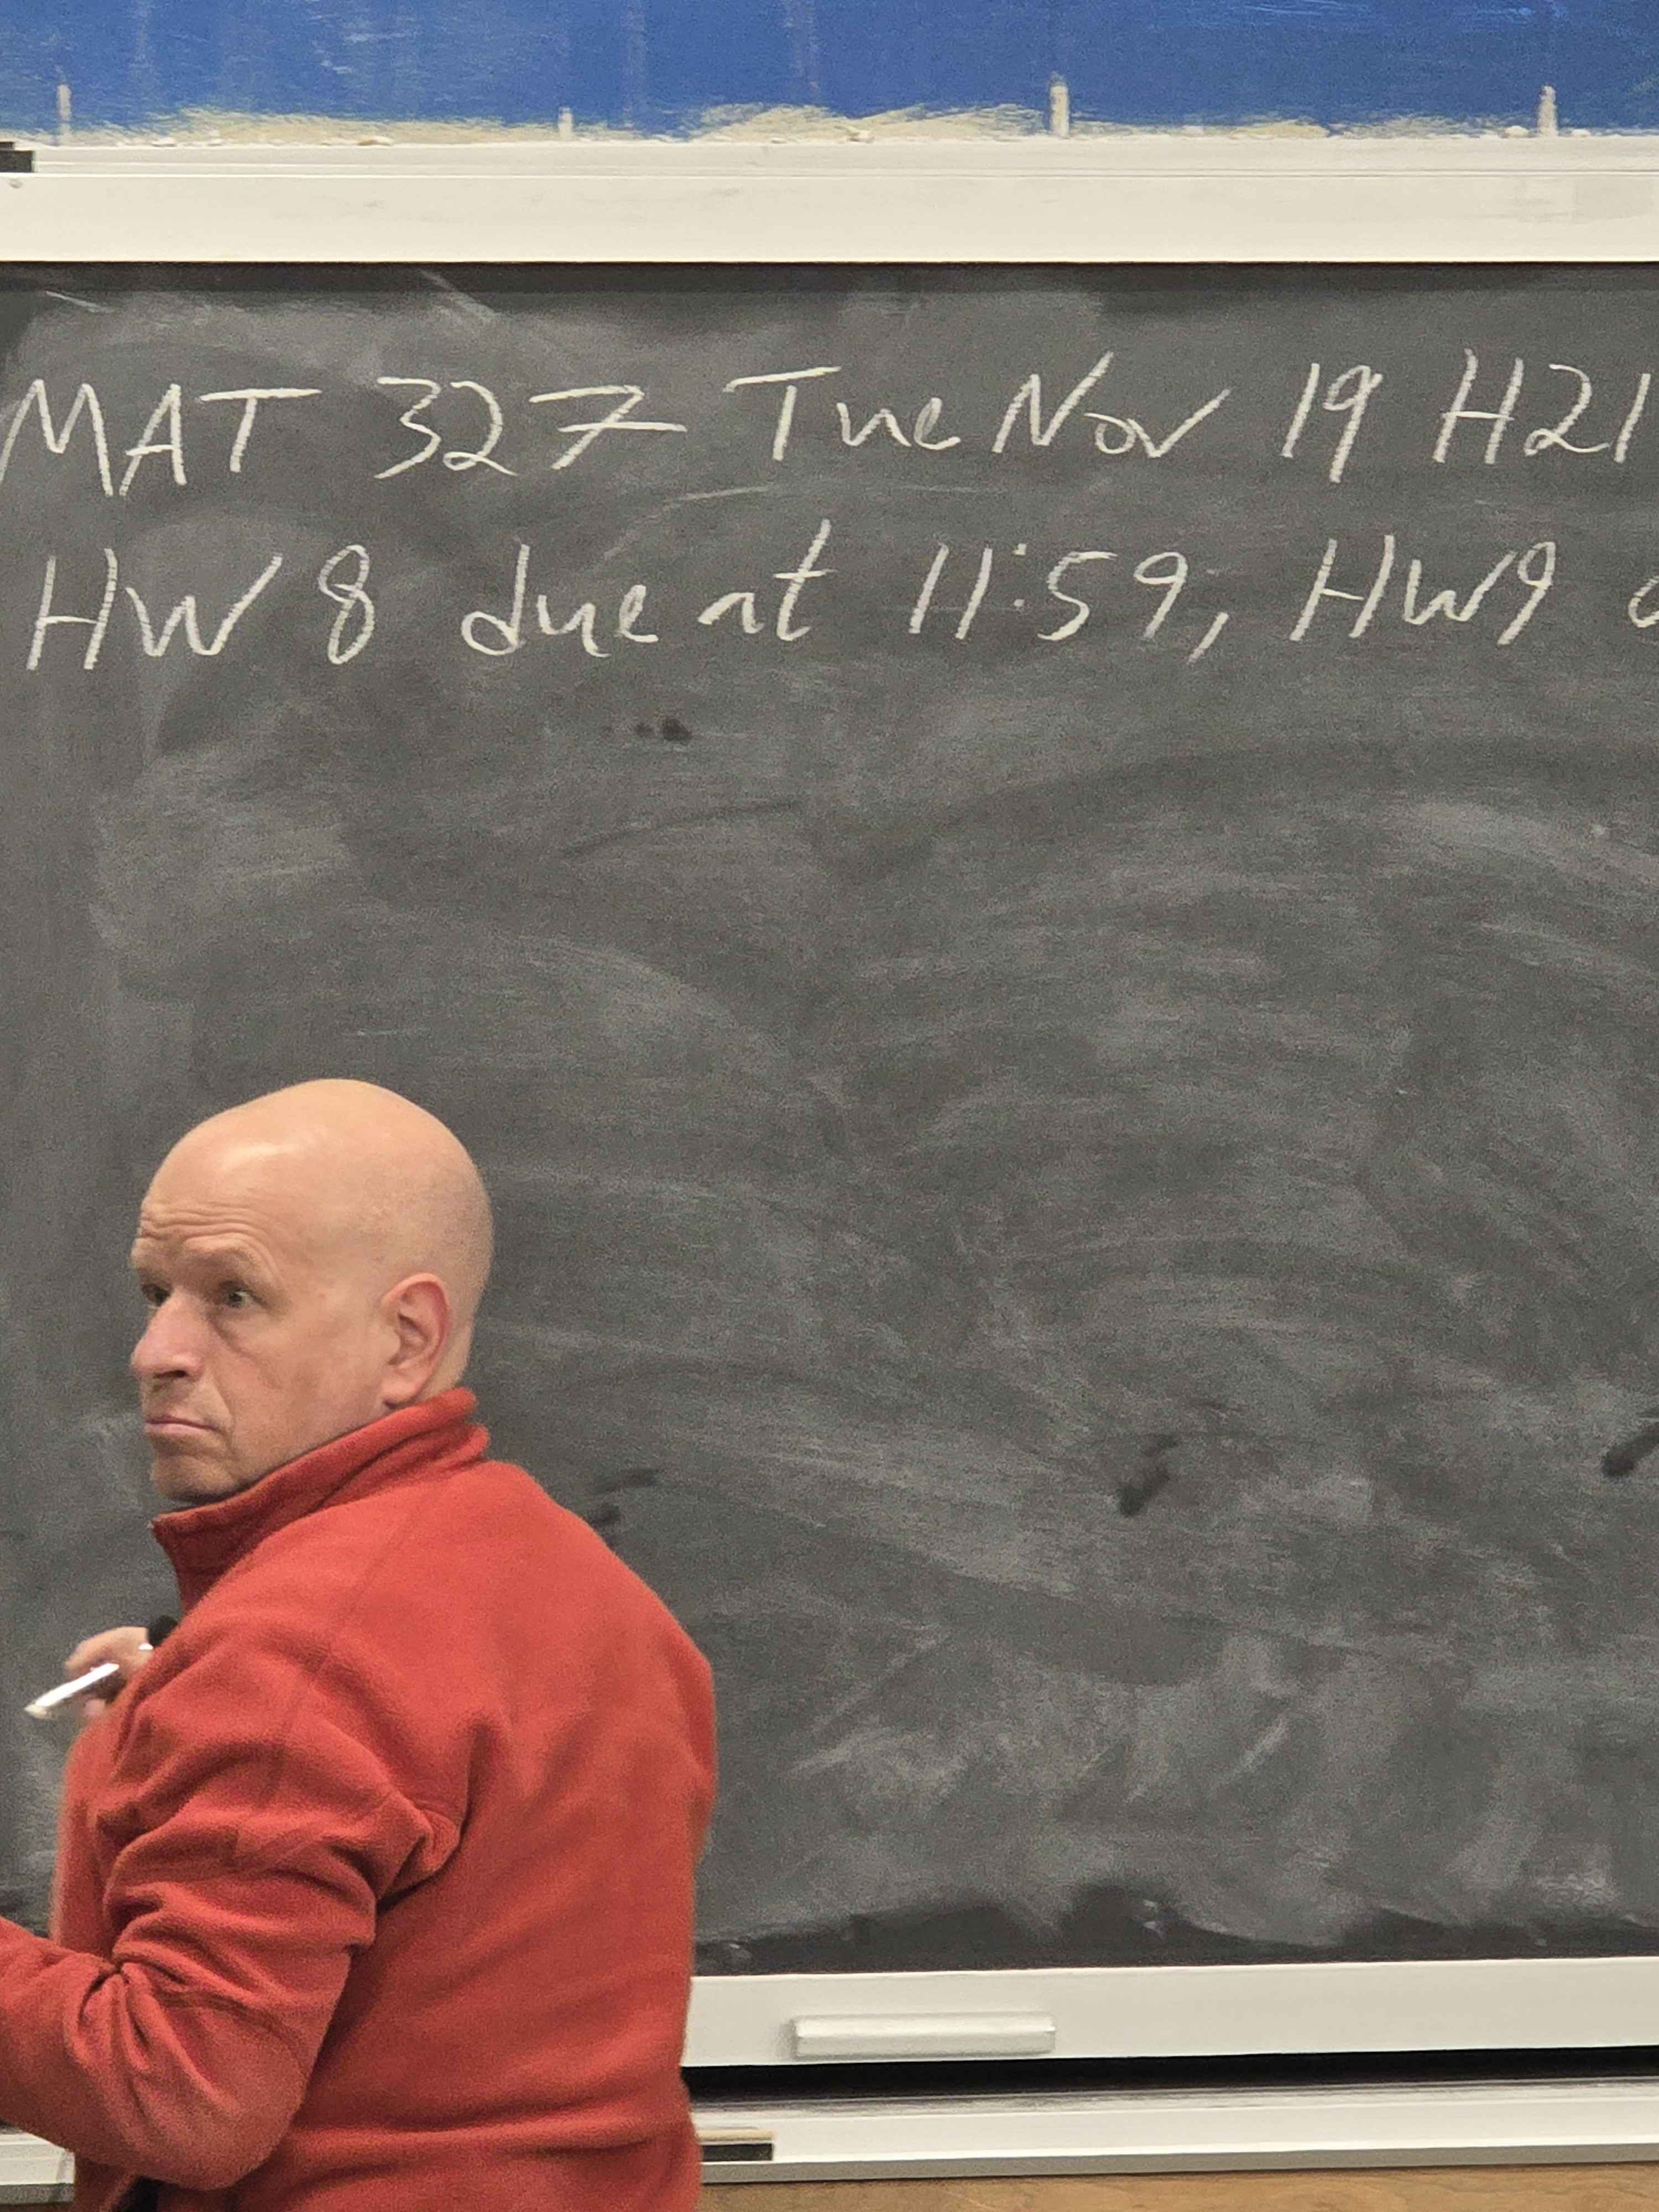 MAT 327 Tue Nov 19 H21
HW 8 due at 11:59, HW9